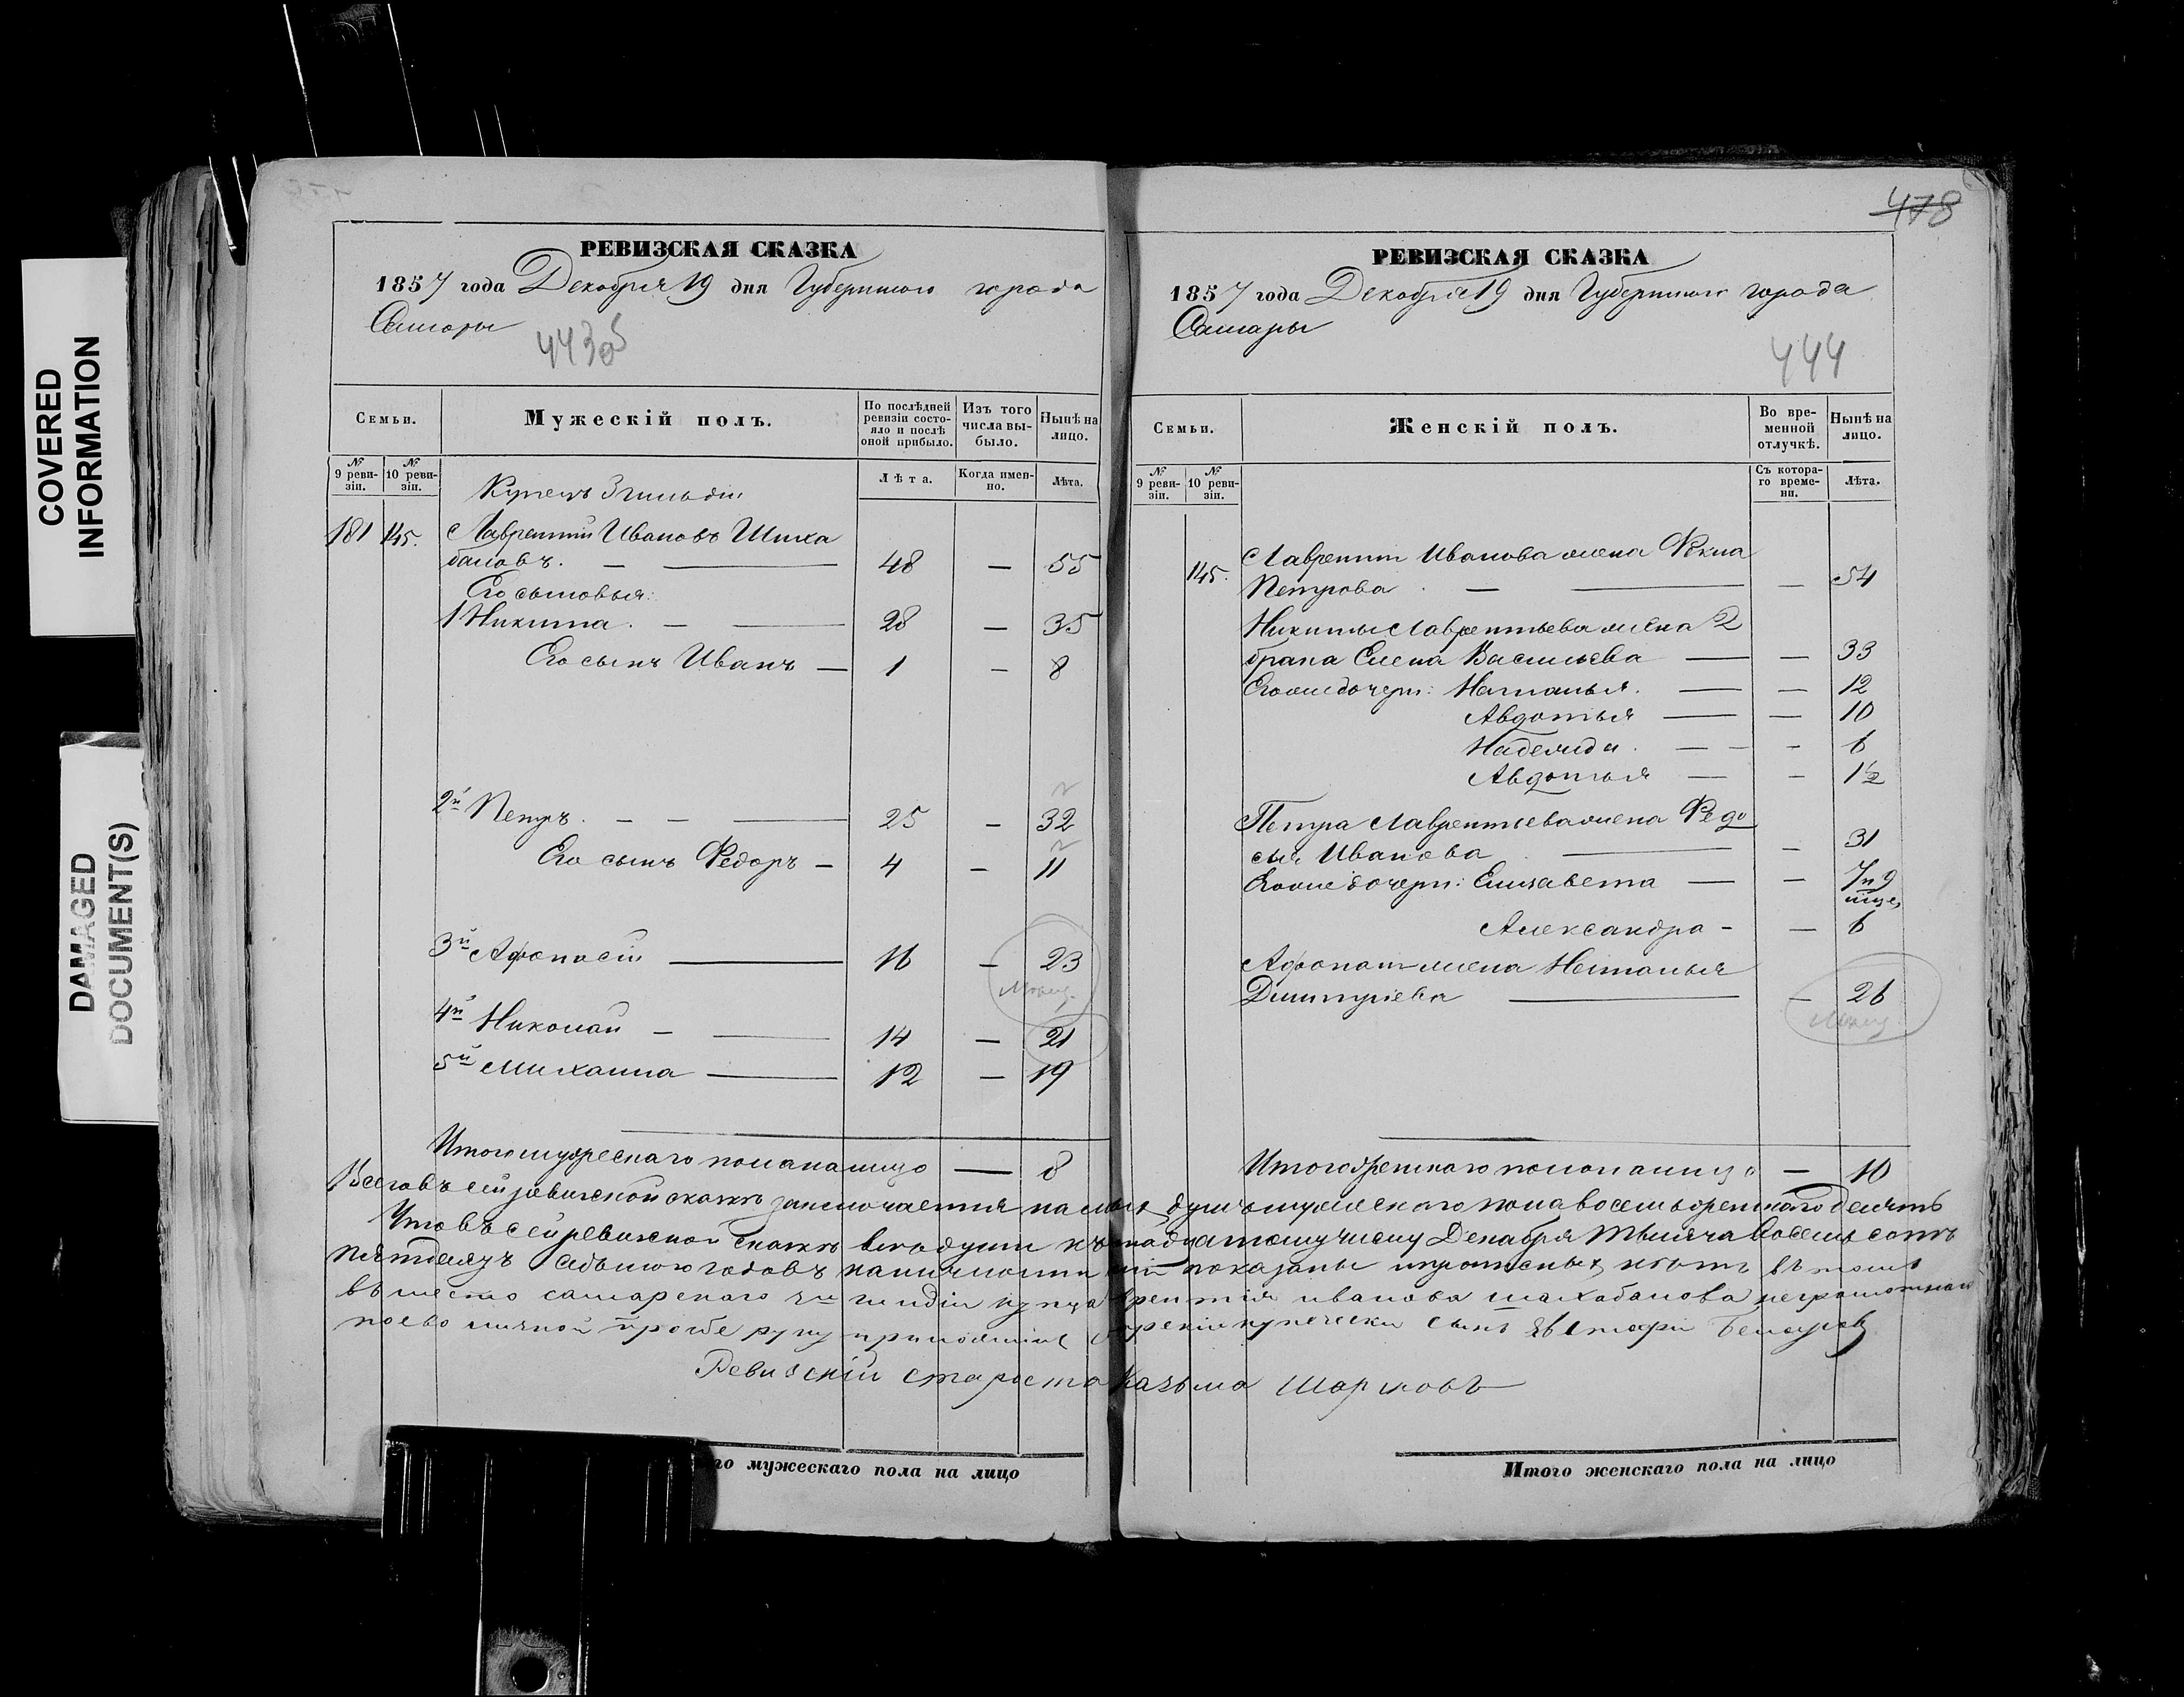 COVERED
INFORMATION
DAMAGED
DOCUMENT(S)
РЕВИЗСКАЯ СКАЗКА
1857 года Декабря 19 дня Губернского города
Самары
443
Семьи.
Мужескій полъ.
По послѣдней ревизіи состояло и послѣ оной прибыло.
Изъ того числа выбыло.
Нынѣ на лицо.
№ 9 ревизіи.
№ 10 ревизіи.
Лѣта.
Когда именно.
Лѣта.
Купецъ 3 гильдіи
181 145. Лаврентий Ивановъ Шиха
бановъ. — 48 — 55
Его сыновья:
1 Никита. — 28 — 35
Его сынъ Иванъ — 1 — 8
2й Петръ. — 25 — 32
Его сынъ Федоръ — 4 — 11
3й Афонасій — 16 — 23
4й Николай — 14 — 21
5й Михаила — 12 — 19
Итого мужескаго пола на лицо — 8
478
РЕВИЗСКАЯ СКАЗКА
1857 года Декабря 19 дня Губернского города
Самары
444
Семьи.
Женскій полъ.
Во временной отлучкѣ.
Нынѣ на лицо.
№ 9 ревизіи.
№ 10 ревизіи.
Съ котораго времени.
Лѣта.
145. Лаврентія Иванова жена Фекла
Петрова — — 54
Никиты Лаврентьева жена 2
брака Елена Васильева — — 33
Его же дочери: Наталья. — — 12
Авдотья — — 10
Надежда. — — 6
Авдотья — — 1½
Петра Лаврентьева жена Федо
сья Иванова — — 31
Его же дочери: Елизавета — — 7 и 9 мцѣ
Александра — — 6
Афонасія жена Наталья
Дмитріева — — 26
Итого женскаго пола на лицо — 10
Всего въ сей ревижской сказкѣ заключается на лицо душъ мужескаго пола восемь женскаго десять
Что въ сей ревижской сказкѣ все души къ числу Декабря тысяча восемь сотъ
пятдесятъ седьмого годовъ показаны и пропускныхъ нѣтъ въ томъ
вместо самарскаго 3й гильдіи купца Лаврентія иванова шихабанова неграмотнаго
по ево личной прозбе руку приложилъ купечески сынъ
Ревизскій староста Казьма Шарповъ
го мужескаго пола на лицо
Итого женскаго пола на лицо